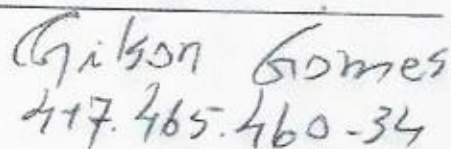 Gilson Gomes
417.465.460-34